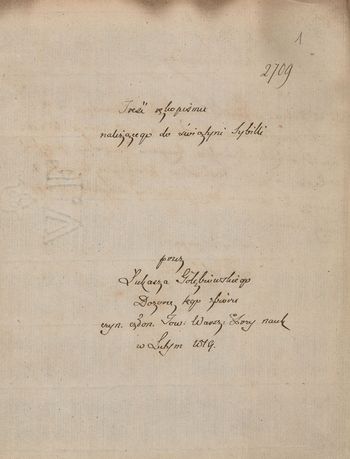 1
2709
Treść rękopismu
należącego do świątyni Sybilli
przez
Łukasza Gołębiowskiego
Dozorcę tego zbioru
czyn. człon. Tow: Warsz: Przy: nauk
w Lutym 1819.
W.F